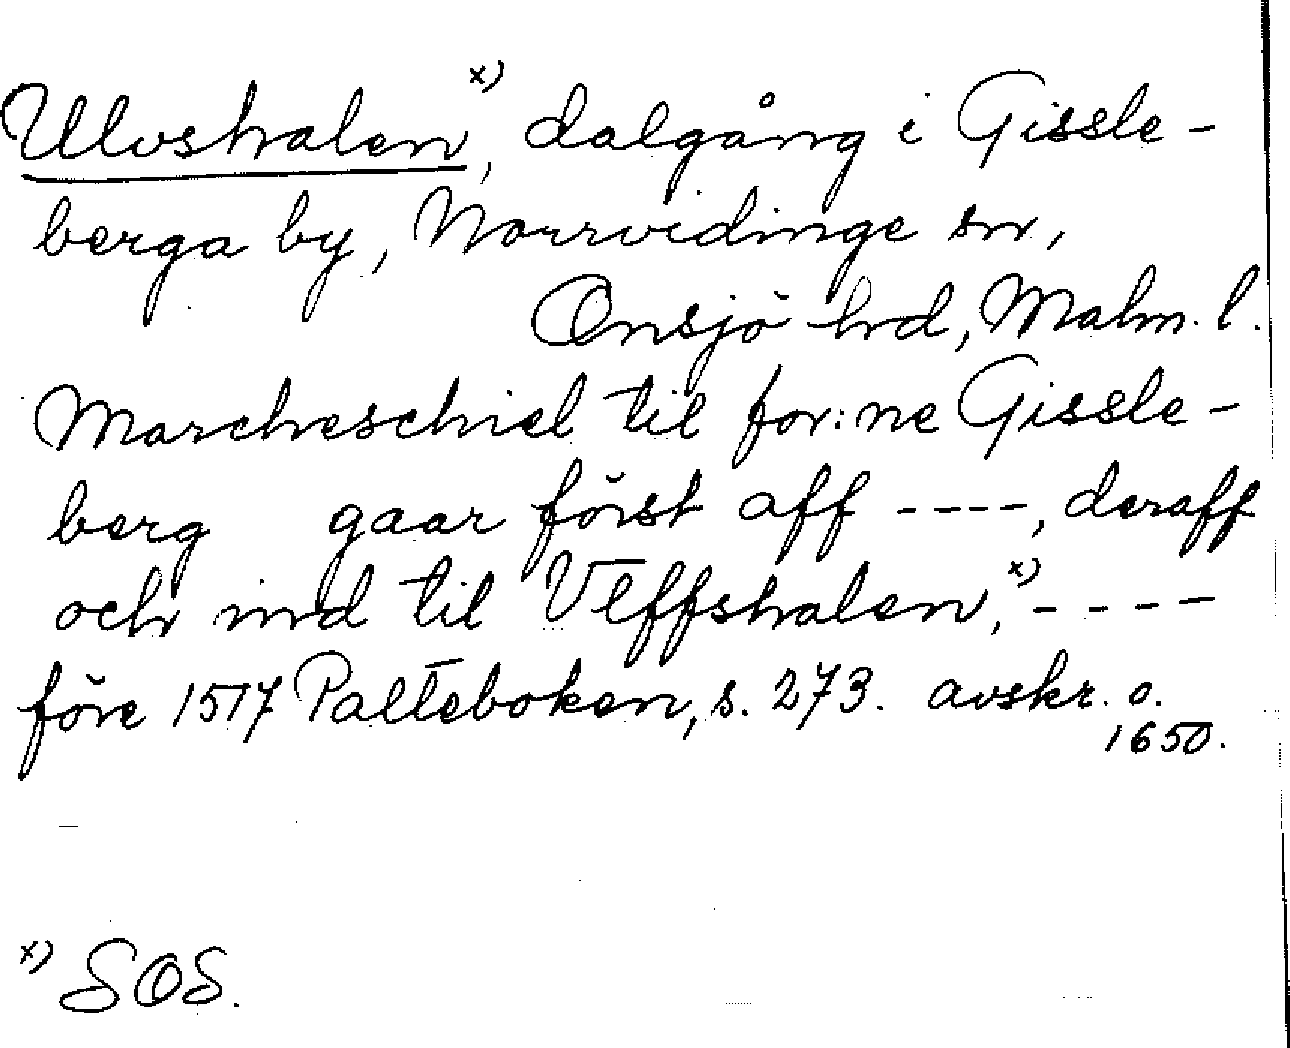 Ulvshalen x), dalgång i Gissle-
berga by, Norrvidinge sn,
Onsjö hrd, Malm. l.
Marcheschiel til for:ne Gissle-
berg gaar först aff ----, deraff
och ind til Vlffshalen, x) ----
före 1517 Palteboken, s. 273. avskr. o.
1650.
x) SOS.